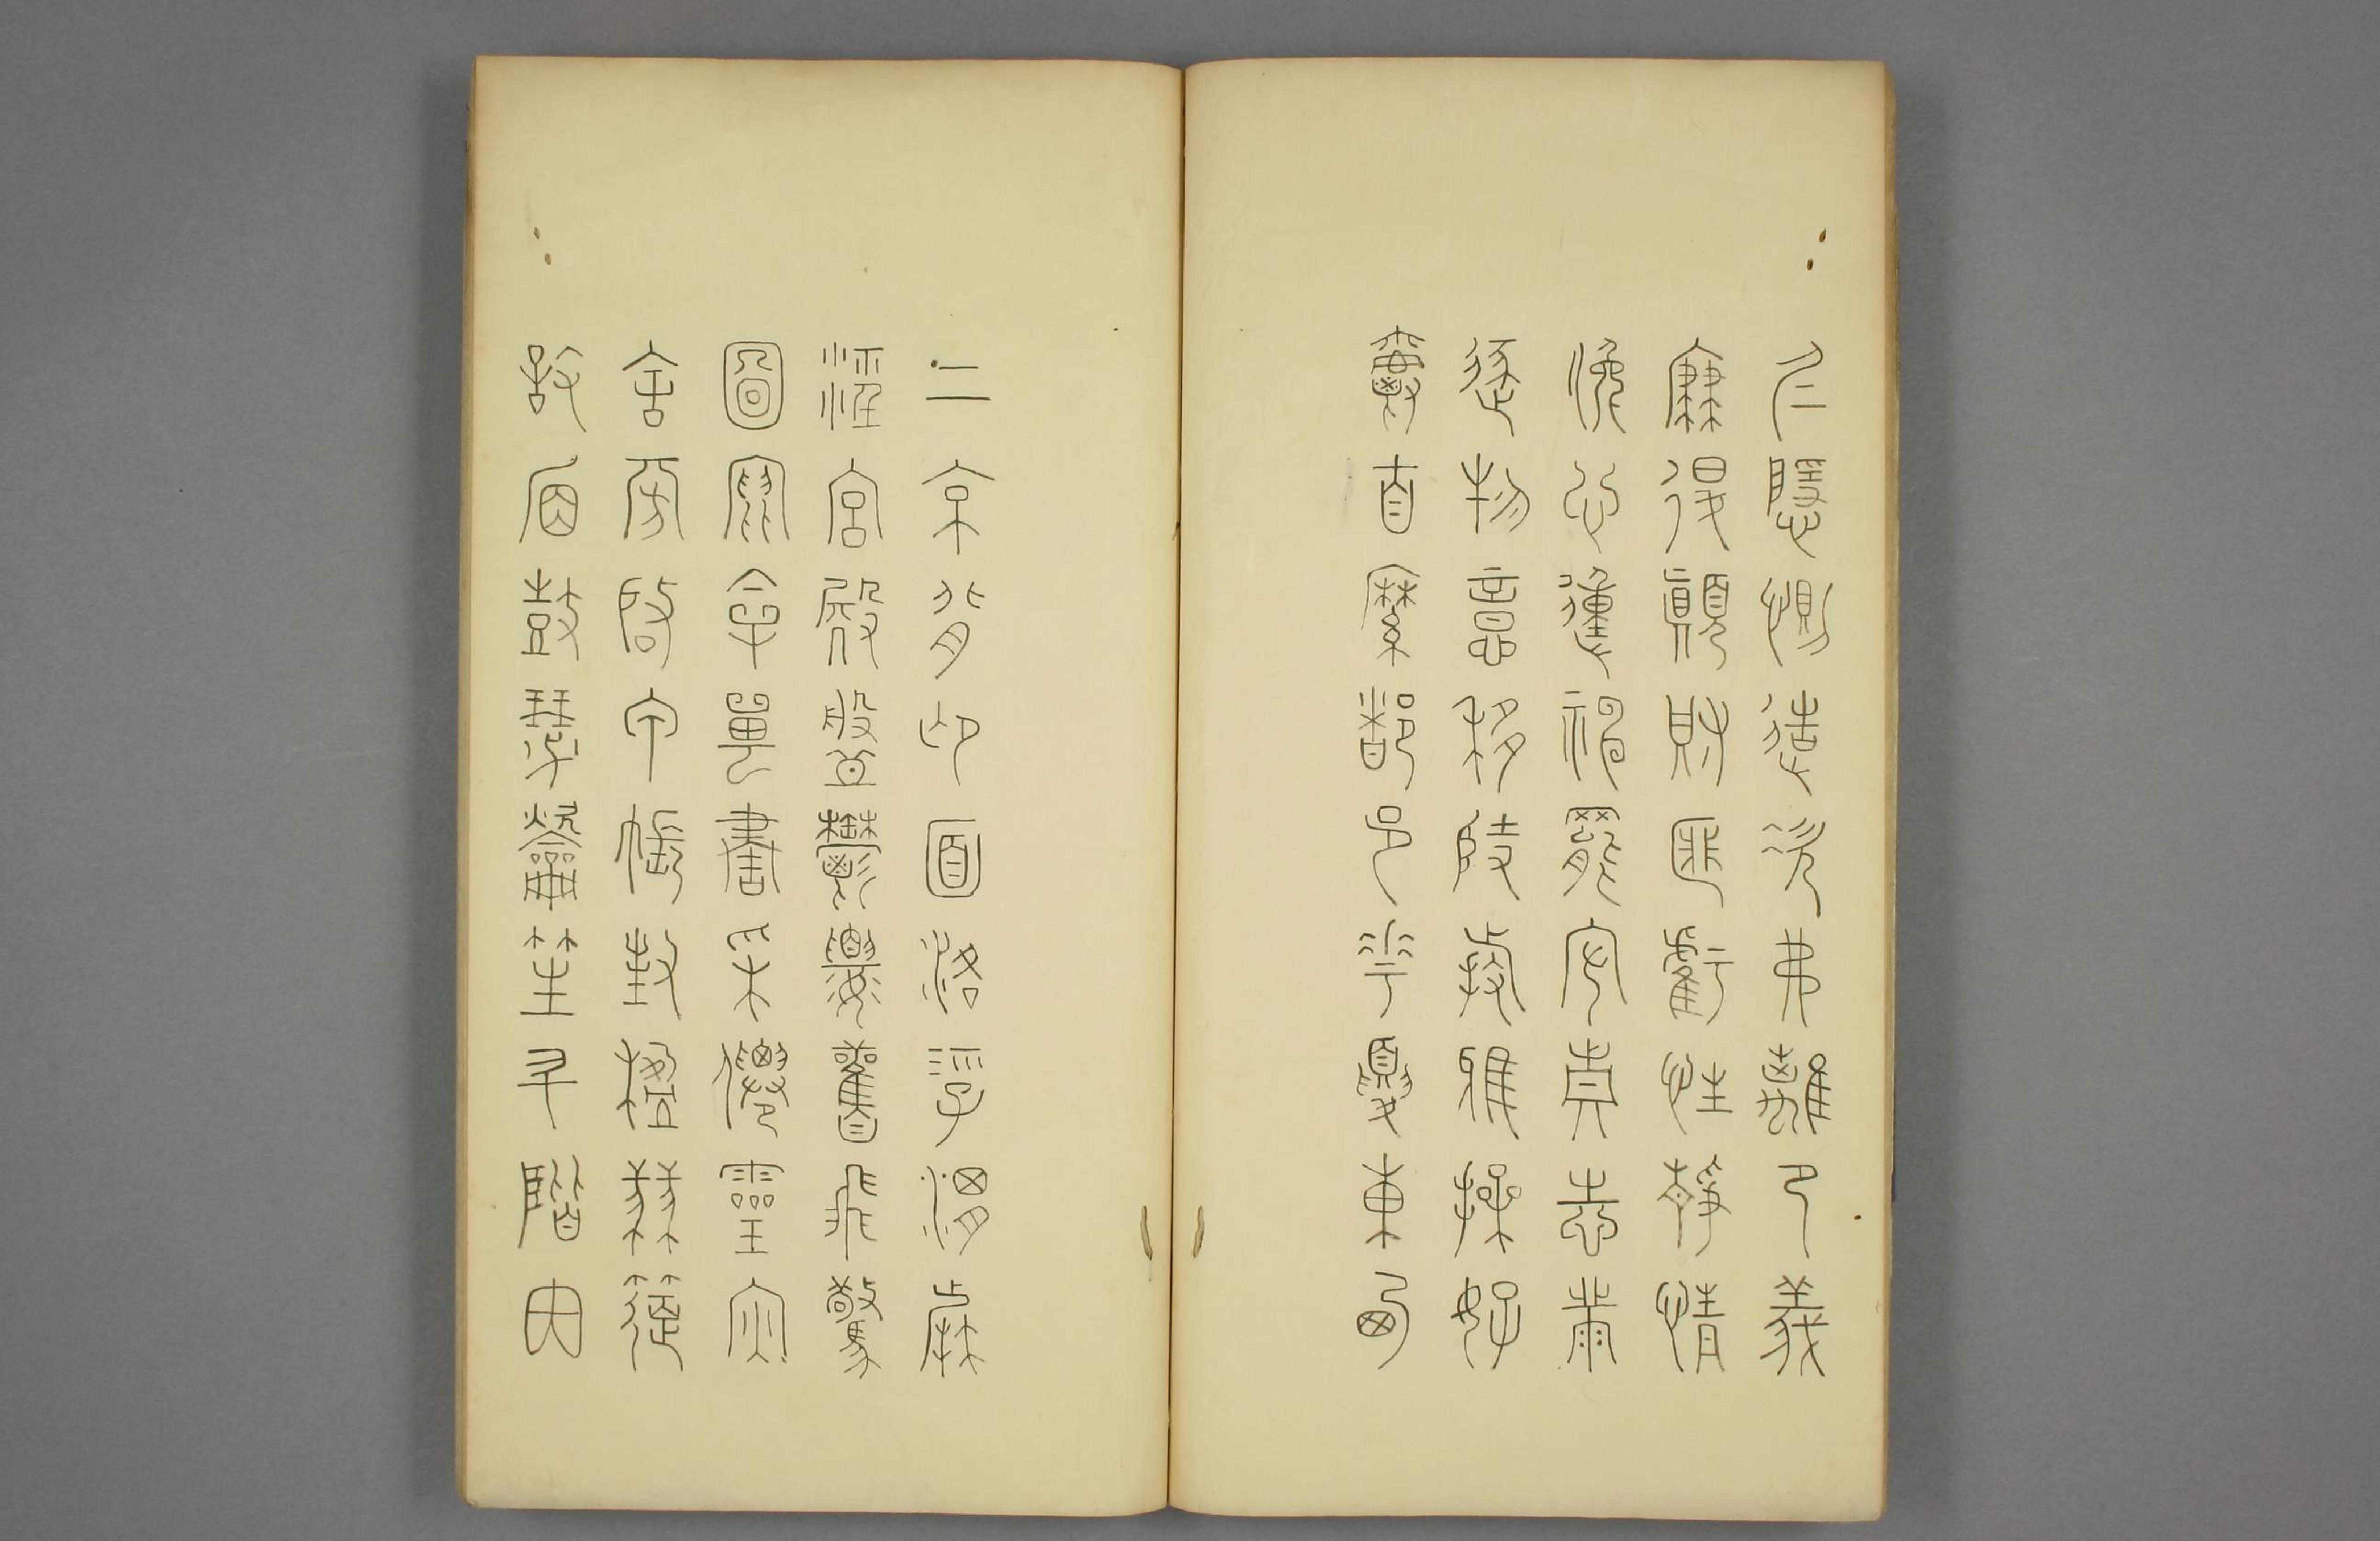 仁隱惻造次弗離卩義
廉退顛沛匪虧性靜情
逸心動神疲守真志滿
逐物意移堅持雅操好
爵自縻都邑華夏東西
二京背邙面洛浮渭據
涇宮殿盤鬱樓觀飛驚
圖寫禽獸畫采僊靈丙
舍旁啟甲帳對楹肆筵
設席鼓瑟龡笙升階內